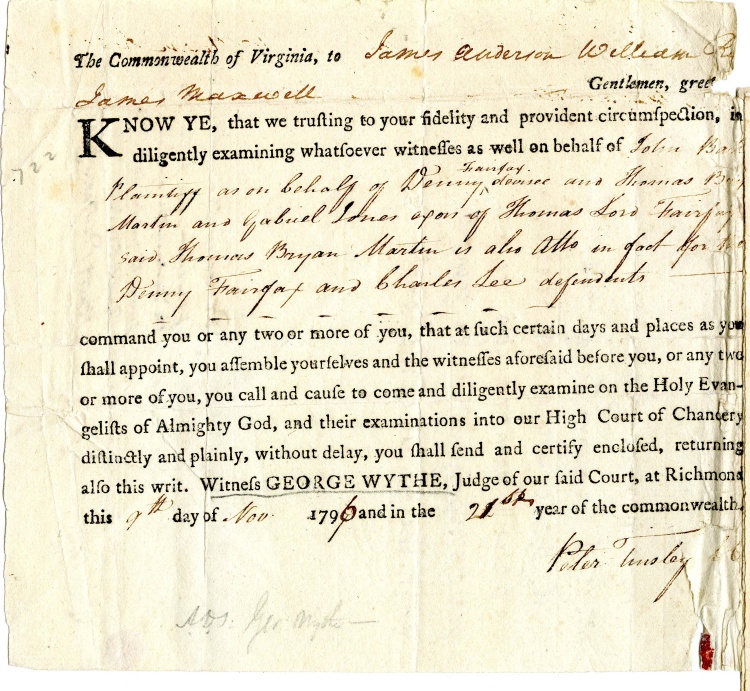 The Commonwealth of Virginia, to James Anderson William
Gentlemen, gree
James Maxwell
KNOW YE, that we trusting to your fidelity and provident circumspection, in
diligently examining whatsoever witnesses as well on behalf of John
722
Plaintiff as on behalf of Denny Fairfax devisee and Thomas
Martin and Gabriel Jones exors of Thomas Lord Fairfax
said Thomas Bryan Martin is also Atto in fact for
Denny Fairfax and Charles Lee defendents
command you or any two or more of you, that at such certain days and places as you
shall appoint, you assemble yourselves and the witnesses aforesaid before you, or any two
or more of you, you call and cause to come and diligently examine on the Holy Evan-
gelists of Almighty God, and their examinations into our High Court of Chancery
distinctly and plainly, without delay, you shall send and certify enclosed, returning
also this writ. Witness GEORGE WYTHE, Judge of our said Court, at Richmond
this 9th day of Nov. 1796 and in the 21st year of the commonwealth.
Peter Tinsley
ADS: Geo Wythe